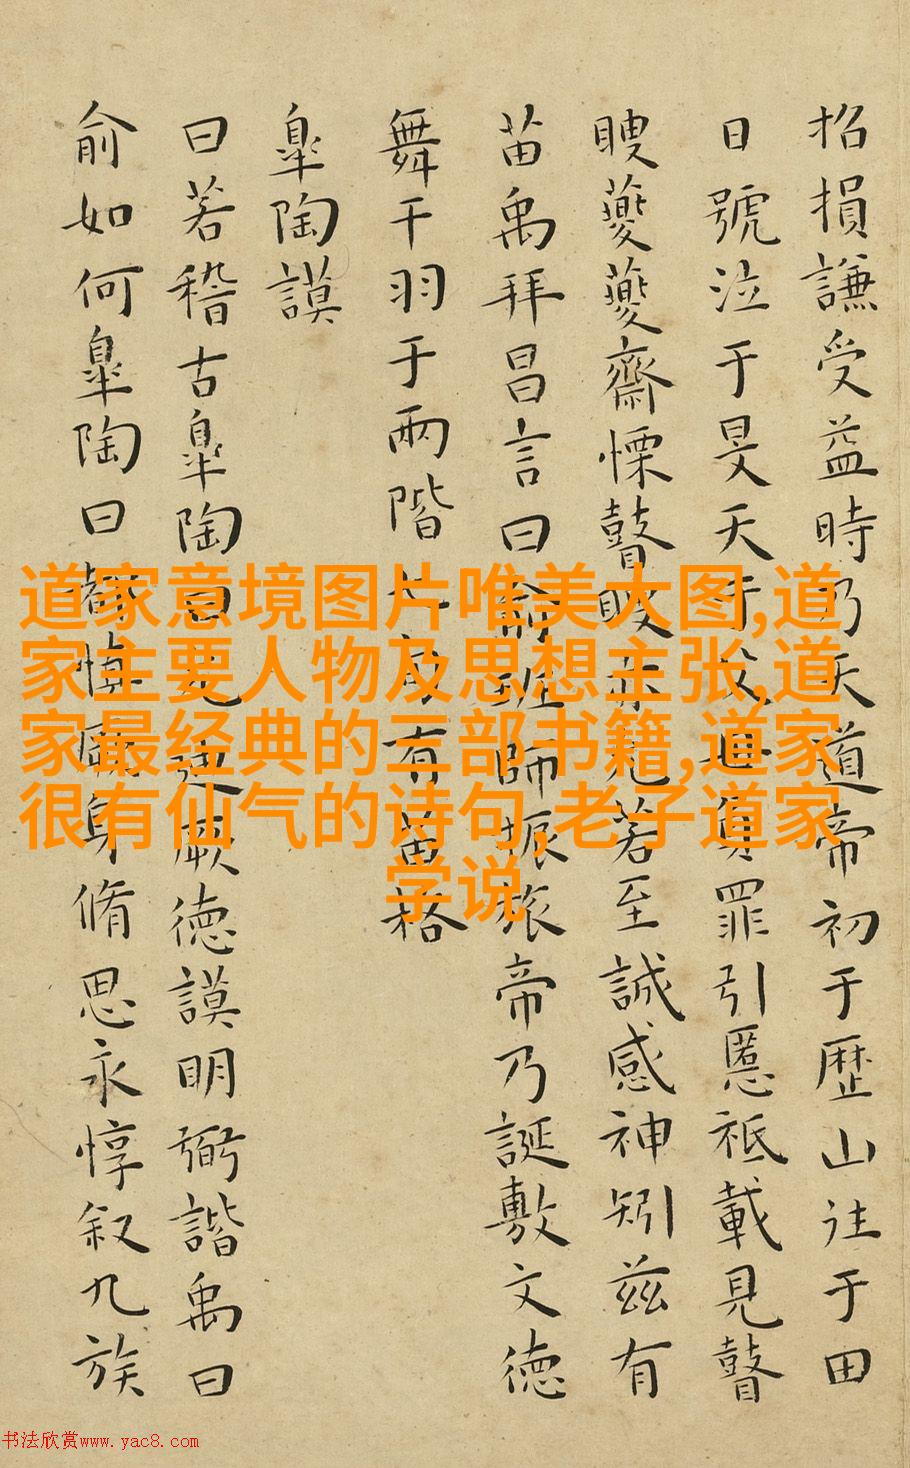 招損謙受益時乃天道帝初于歴山往于田
日號泣于旻天于父母負罪引慝祗載見瞽
瞍夔夔齋慄瞽瞍亦允若至誠感神矧茲有
苗禹拜昌言曰俞班師振旅帝乃誕敷文德
舞干羽于兩階七旬有苗格
皐陶謨
曰若稽古皐陶曰允迪厥德謨明弼諧禹曰
俞如何皐陶曰都慎厥身脩思永惇叙九族
道家意境图片唯美大图,道
家主要人物及思想主张,道
家最经典的三部书籍,道家
很有仙气的诗句,老子道家
学说
书法欣赏www.yac8.com